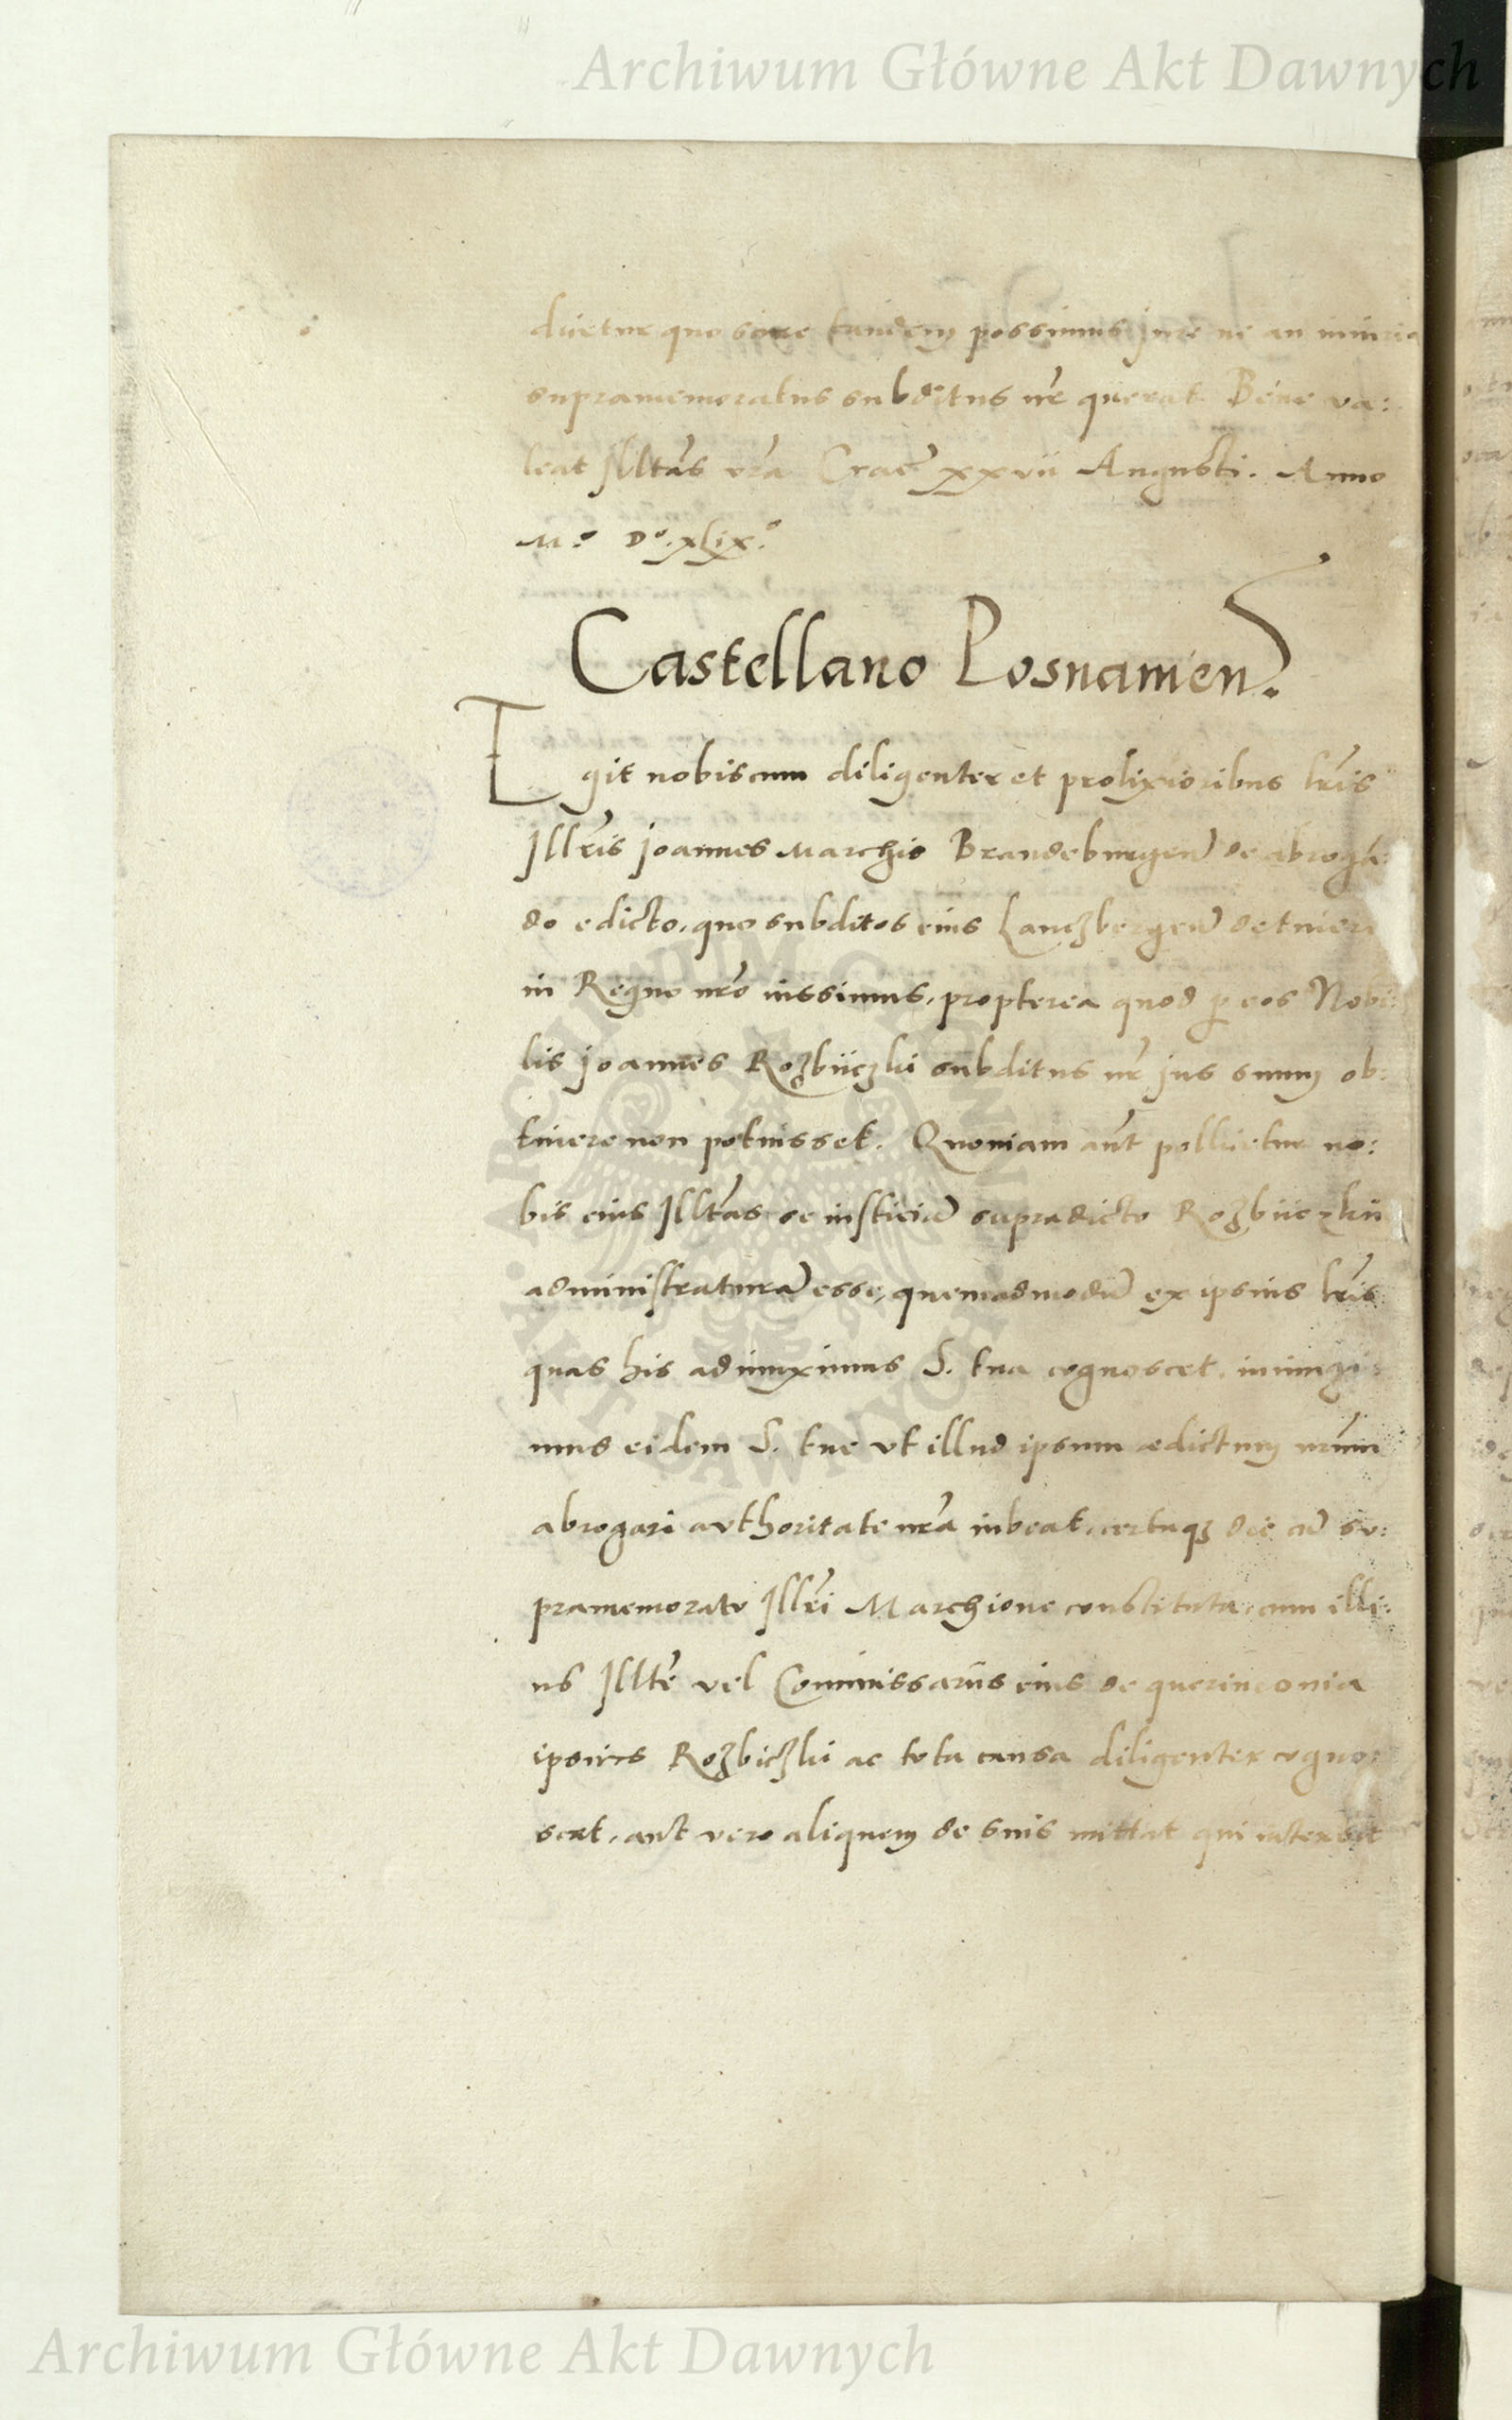 Archiwum Główne Akt Dawnych
duetur quo scire tandem possimus jure ne an iniuria
supramemoratus subditus nr̄ querat. Bene va:
leat Illtās vrā Crac̄ xxvii Augusti. Anno
M.º Dº. xlix.º
Castellano Posnamien̄.
Egit nobiscum diligenter et prolixioribus lrīs
Illrīs Joannes Marchio Brandeburgen̄ de abrogā:
do edicto, quo subditos eius Lanczbergen̄ detineri
in Regno nrō iussimus, propterea quod p eos Nobi:
lis Joannes Rozbiiczki subditus nr̄ jus suum ob:
tinere non potuisset. Quoniam aūt pollicetur no:
bis eius Illtās se iusticiā supradicto Rozbiiczkii
administraturā esse, quemadmodū ex ipsius lrīs
quas his adiunximus S. tua cognoscet, iniungi:
mus eidem S. tue vt illud ipsum ædictum nrūm
abrogari avthoritate nrā iubeat, certaqz die cū su:
pramemorato Illrī Marchione constituta, cum illi:
us Illtē vel Commissariis eius de querimonia
ipsius Rozbiczki ac tota causa diligenter cogno:
scat, aut vero aliquem de suis mittat qui intersit
Archiwum Główne Akt Dawnych